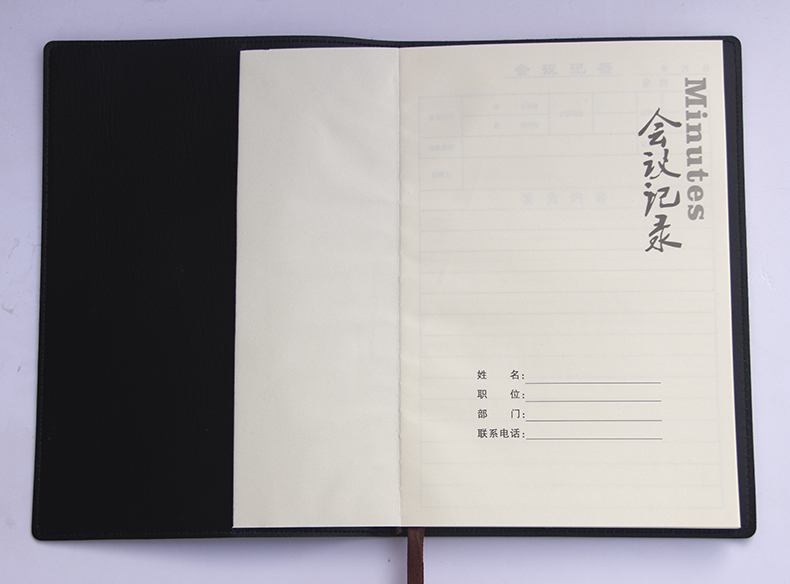 Minutes
会议记录
姓 名:
职 位:
部 门:
联系电话: